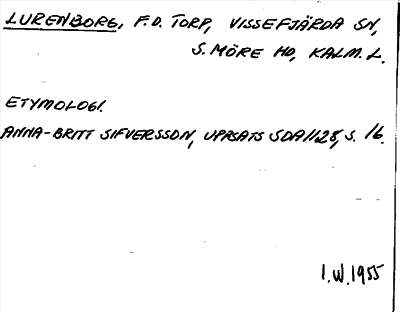 LURENBORG, F.D. TORP, VISSEFJÄRDA SN,
S. MÖRE HD, KALM. L.
ETYMOLOGI.
ANNA-BRITT SIFVERSSON, UPPSATS SDA 1128, S. 16.
I.W. 1955